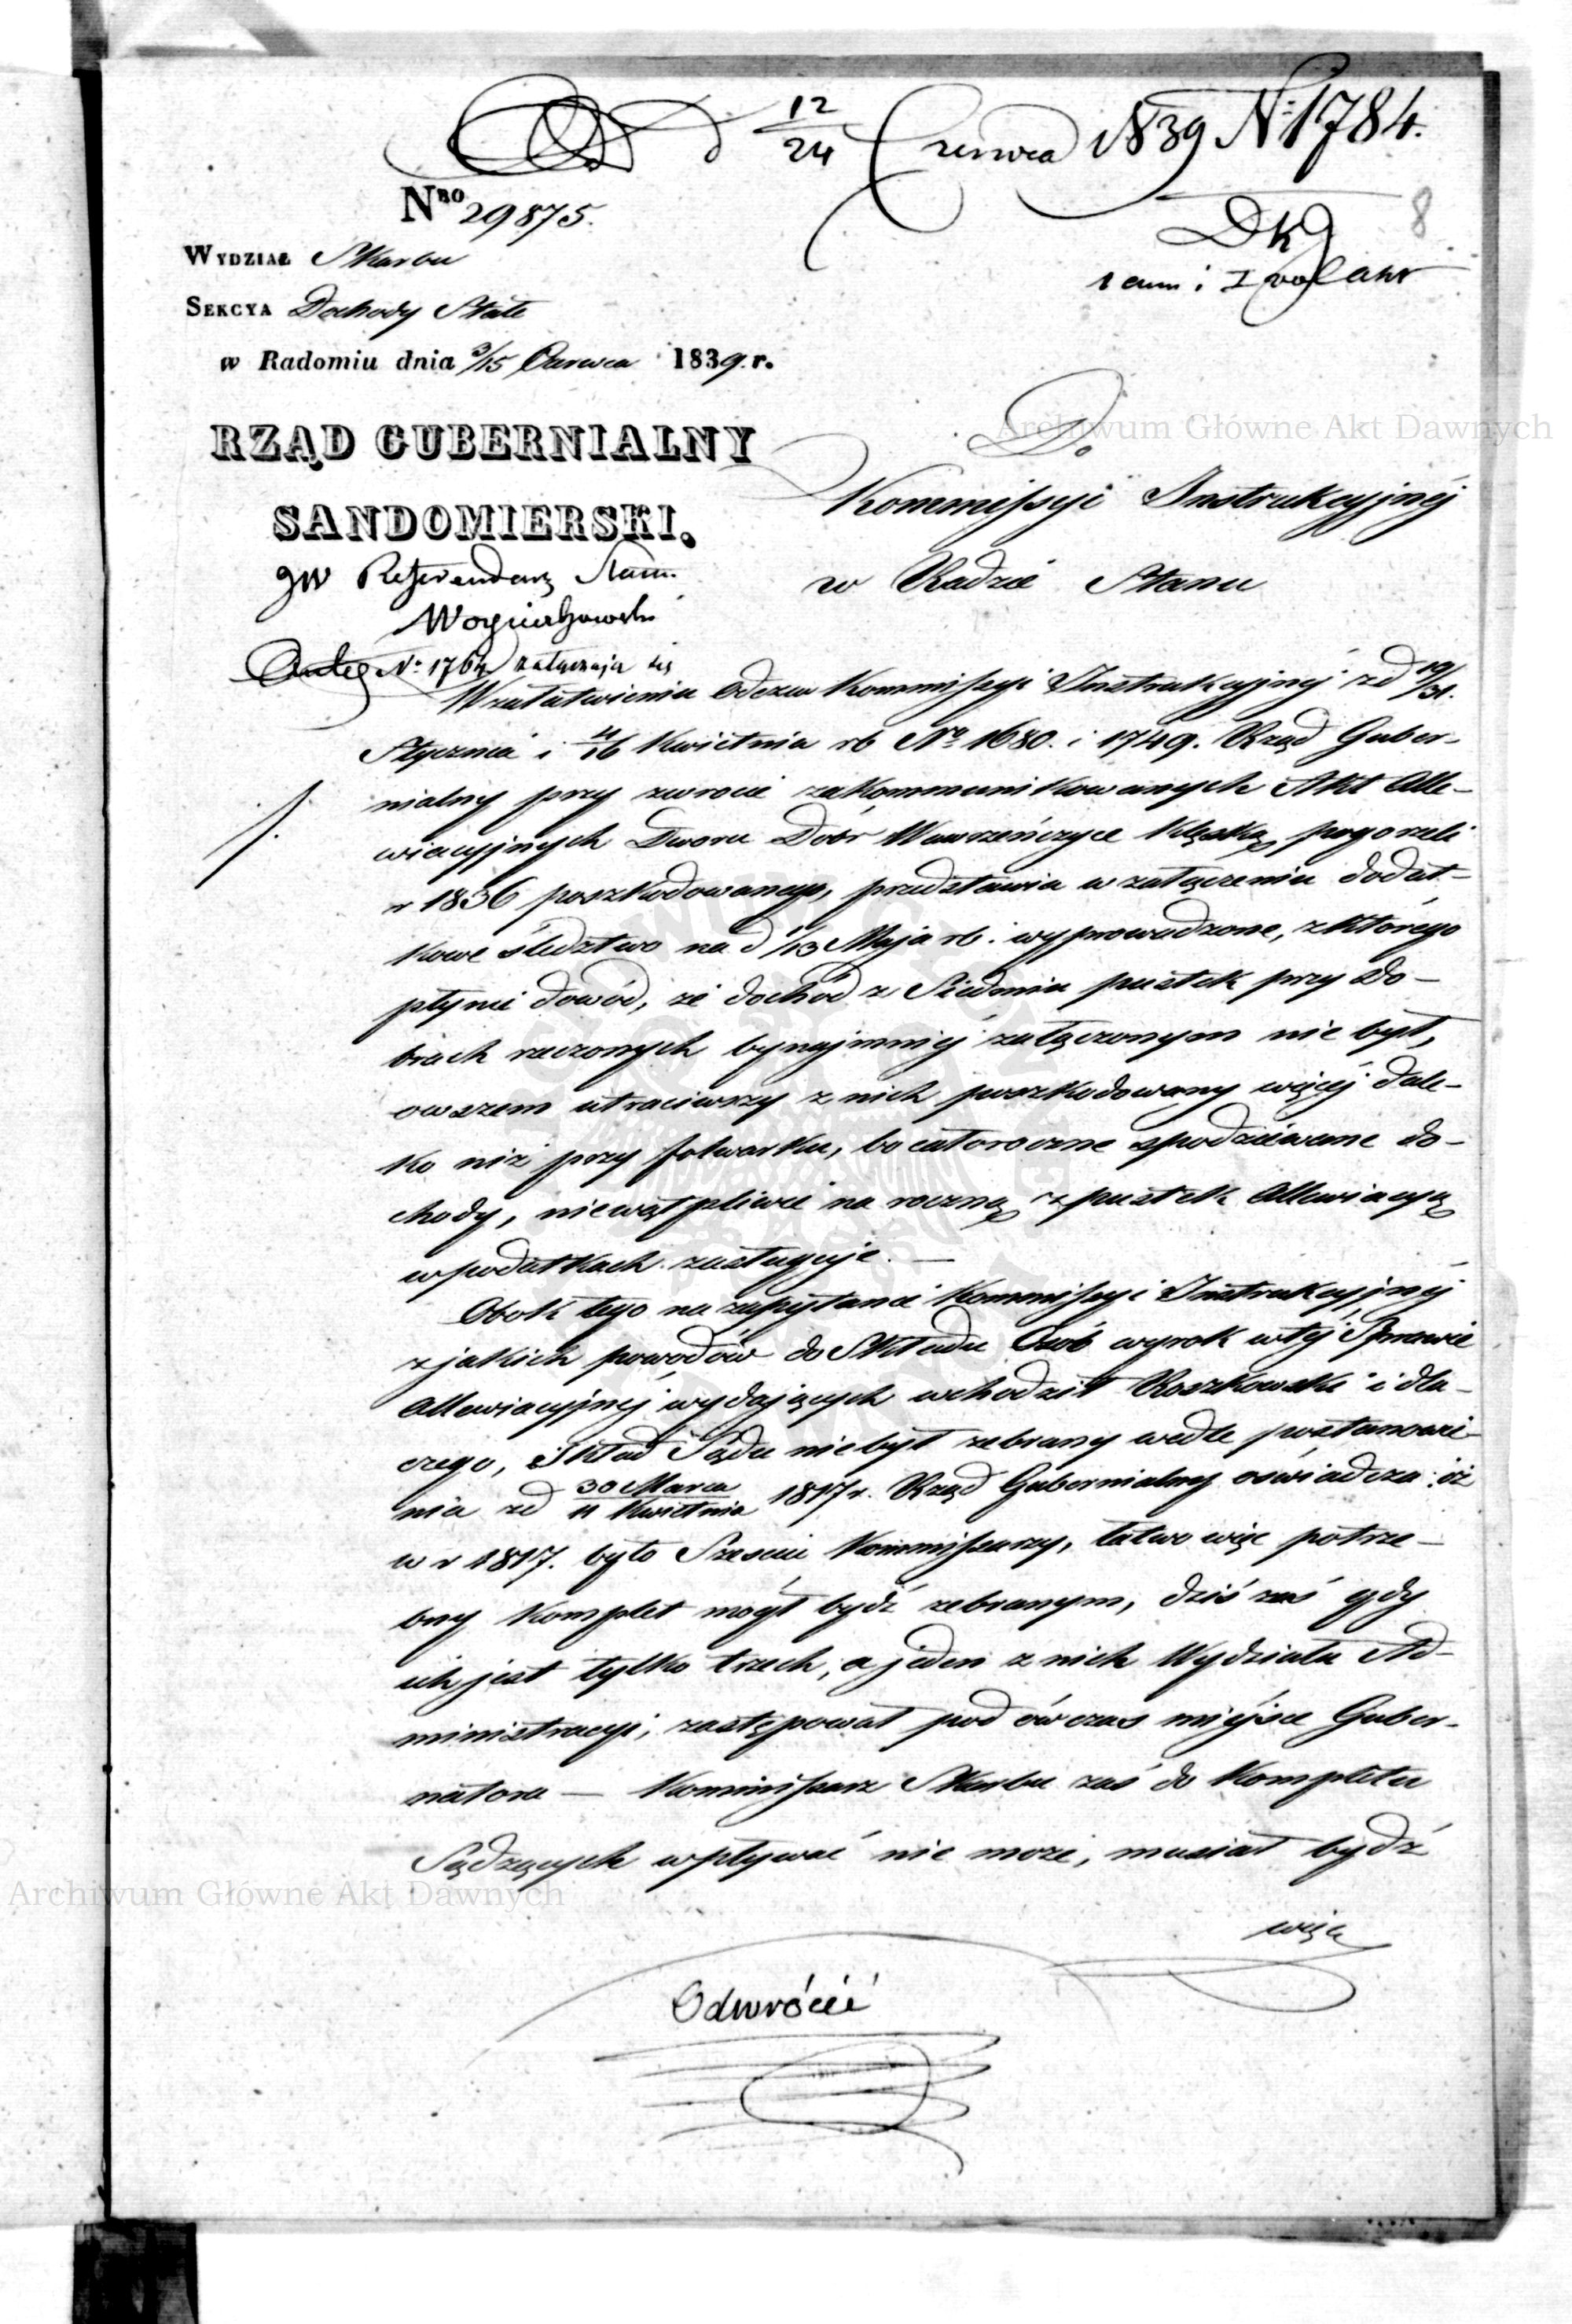 d 12/24 Czerwca 1839 N: 1784.
8
Nro 29875.
Wydział Skarbu
Sekcya Dochody Stałe
w Radomiu dnia 3/15 Czerwca 1839. r.
RZĄD GUBERNIALNY
SANDOMIERSKI.
JW Referendarz Stanu
Woyciechowski
N: 1764 załączają się
Do
Kommissyi Instrukcyjnéj
w Radzie Stanu
W załatwieniu Odezw Kommissyi Instrukcyjnéj z d 19/31.
Stycznia i 4/16 Kwietnia rb No 1680. i 1749. Rząd Guber-
nialny przy zwrocie zakommunikowanych Akt Alle-
wiacyjnych Dworu Dóbr Wawrzeńczyce klęską pogorzeli
r 1836 poszkodowanego, przedstawia w załączeniu dodat-
kowe śledztwo na d 1/13 Maja rb. wyprowadzone, z którego
płynie dowód, że dochód z Siedmiu pustek przy Do-
brach rzeczonych bynajmniéj załączonym nie był,
owszem utraciwszy z nich poszkodowany więcéj dale-
ko niż przy folwarku, bo całoroczne spodziewane do-
chody, niewątpliwie na roczną z pustek Allewiacyą
w podatkach zasługuje. —
Obok tego na zapytanie Kommissyi Instrukcyjnéj
z jakich powodów do Składu Osób wyrok w téj Sprawie
Allewiacyjnéj wydających wchodził Roszkowski i dla-
czego, Skład Sądu nie był zebrany wedle postanowie-
nia z d 30 Marca/11 Kwietnia 1817 r. Rząd Gubernialny oświadcza: iż
w r 1817. było Sześciu Kommissarzy, łatwo więc potrze-
bny Komplet mógł bydź zebranym, dziś zaś gdy
ich jest tylko trzech, a jeden z nich Wydziału Ad-
ministracyi, zastępował pod ówczas miéjsce Guber-
natora — Kommissarz Skarbu zaś do Kompletu
Sądzących wpływać nie może, musiał bydź
więc
Odwrócić
Archiwum Główne Akt Dawnych
Archiwum Główne Akt Dawnych